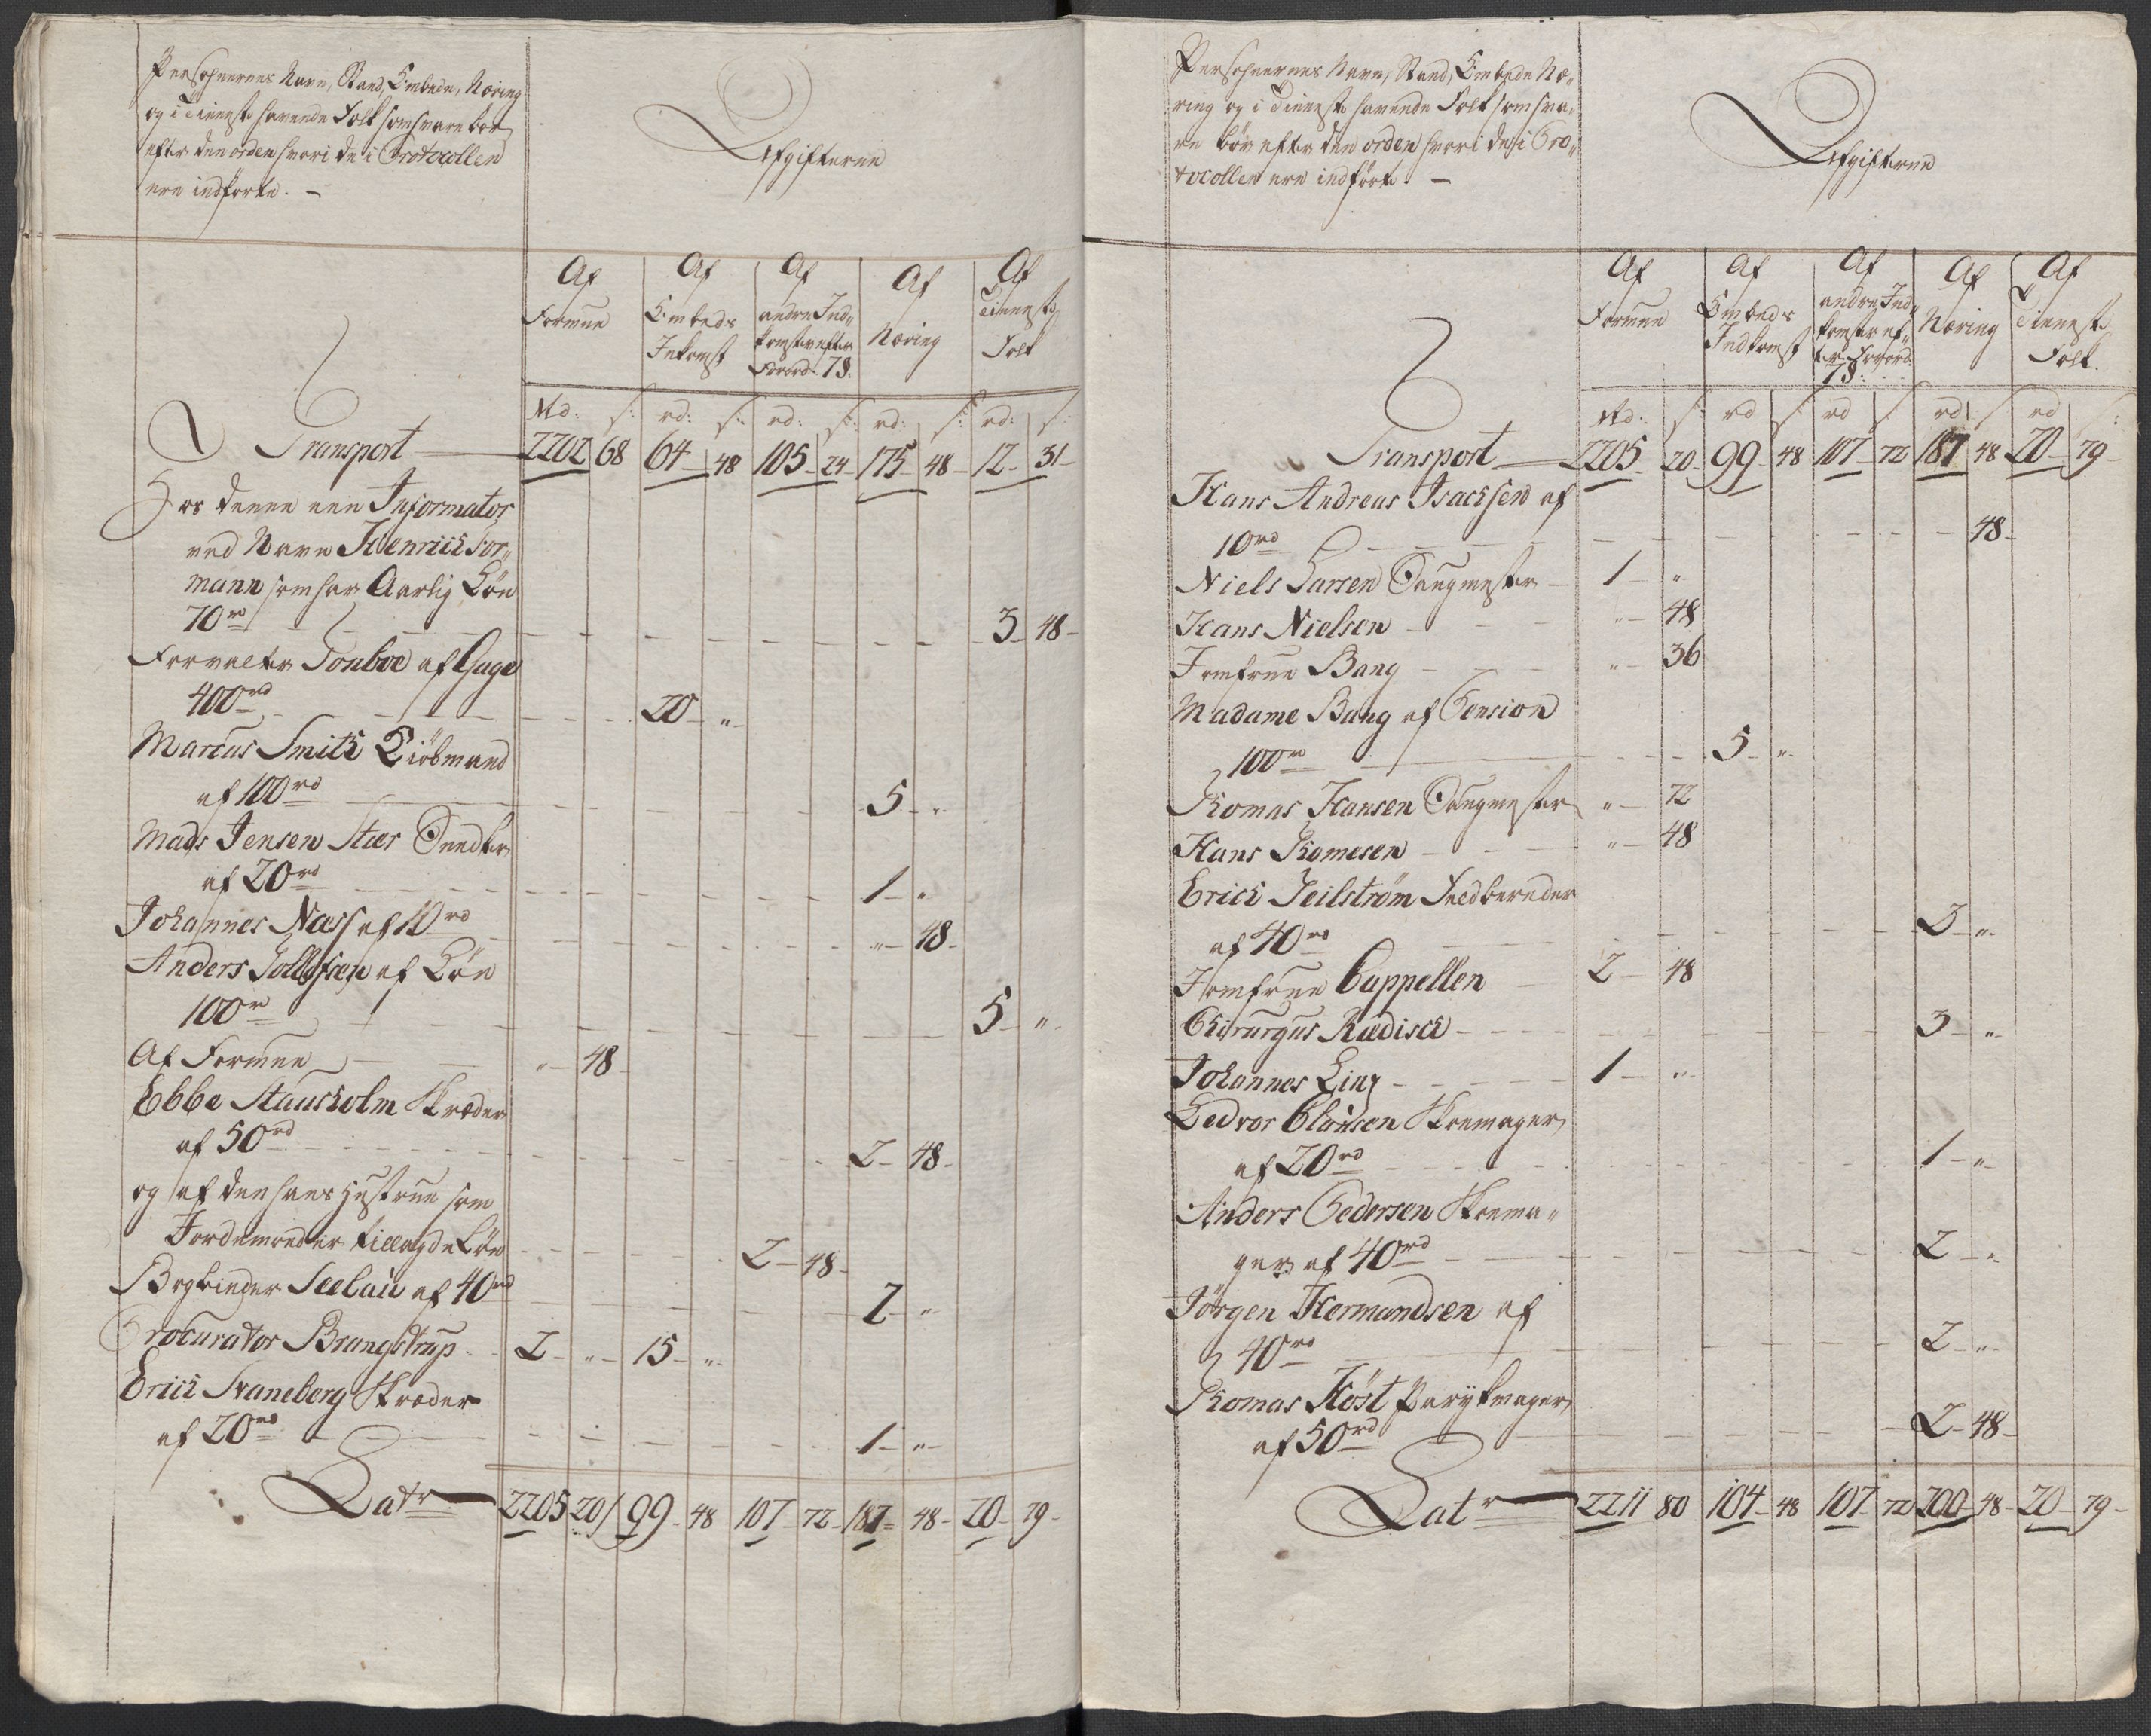 Personernes Navn, Stand, Embede, Næring
og i Tieneste havende Folk som svare bør
efter den orden hvori de i Protocollen
ere indførte. —
Afgifterne
Af Formue
Af Embeds Inkomst
Af andre Ind„ komster efter Forord. 7 §.
Af Næring
Af Tieneste Folk
Rd: s: rd: s: rd: s: rd: s: rd: s:
Transport — 2202 68 64 48 105 24 175 48 12 31
Hos denne een Informator
ved Navn Henrich For„
mann som har Aarlig Løn
70 rd — 3 48
Forvalter Touboe af Gage
400 rd — 20 „
Marcus Smith Kiöbmand
af 100 rd — 5 „
Mads Jensen Stær Snedker
af 20 rd — 1 „
Johannes Næss af 10 rd — „ 48
Anders Tollefsen af Løn
100 r — 5 „
Af Formue — „ 48
Ebbe Stausholm Skræder
af 50 rd — 2 48
og af den hans Hustrue som
Jordemoder tillagde Løn — 2 48
Bogbinder Seelau af 40 rd — 2 „
Procurator Brangstrup — 2 „ 15 „
Erich Svaneborg Skræder
af 20 rd — 1 „
Latr — 2205 20 99 48 107 72 187 48 20 79
Personernes Navn, Stand, Embede Næ„
ring og i Tieneste havende Folk som sva„
re bør efter den orden hvori de i Pro„
tocollen ere indførte —
Afgifterne
Af Formue
Af Embeds Indkomst
Af andre Ind„ komster ef„ ter Forord. 7 §:
Af Næring
Af Tieneste Folk.
Rd: s: rd s: rd s: rd s: rd s:
Transport — 2205 20 99 48 107 72 187 48 20 79
Hans Andreas Isachsen af
10 rd — 48
Niels Larsen Saugmester — 1 „
Hans Nielsen — „ 48
Jomfrue Bang — „ 36
Madame Bang af Pension
100 r — 5 „
Thomas Hansen Saugmester „ 72
Hans Thomesen — „ 48
Erich Feilstrøm Feldbereder
af 40 rd — 2 „
Jomfrue Cappellen — 2 48
Chirurgus Rædisch — 3 „
Johannes Ling — 1 „
Ledvor Clausen Skoemager
af 20 rd — 1 „
Anders Pedersen Skoema„
ger af 40 rd — 2 „
Jörgen Hermandsen af
40 rd — 2 „
Thomas Höst Parykmager
af 50 rd — 2 48
Latr — 2211 80 104 48 107 72 200 48 20 79